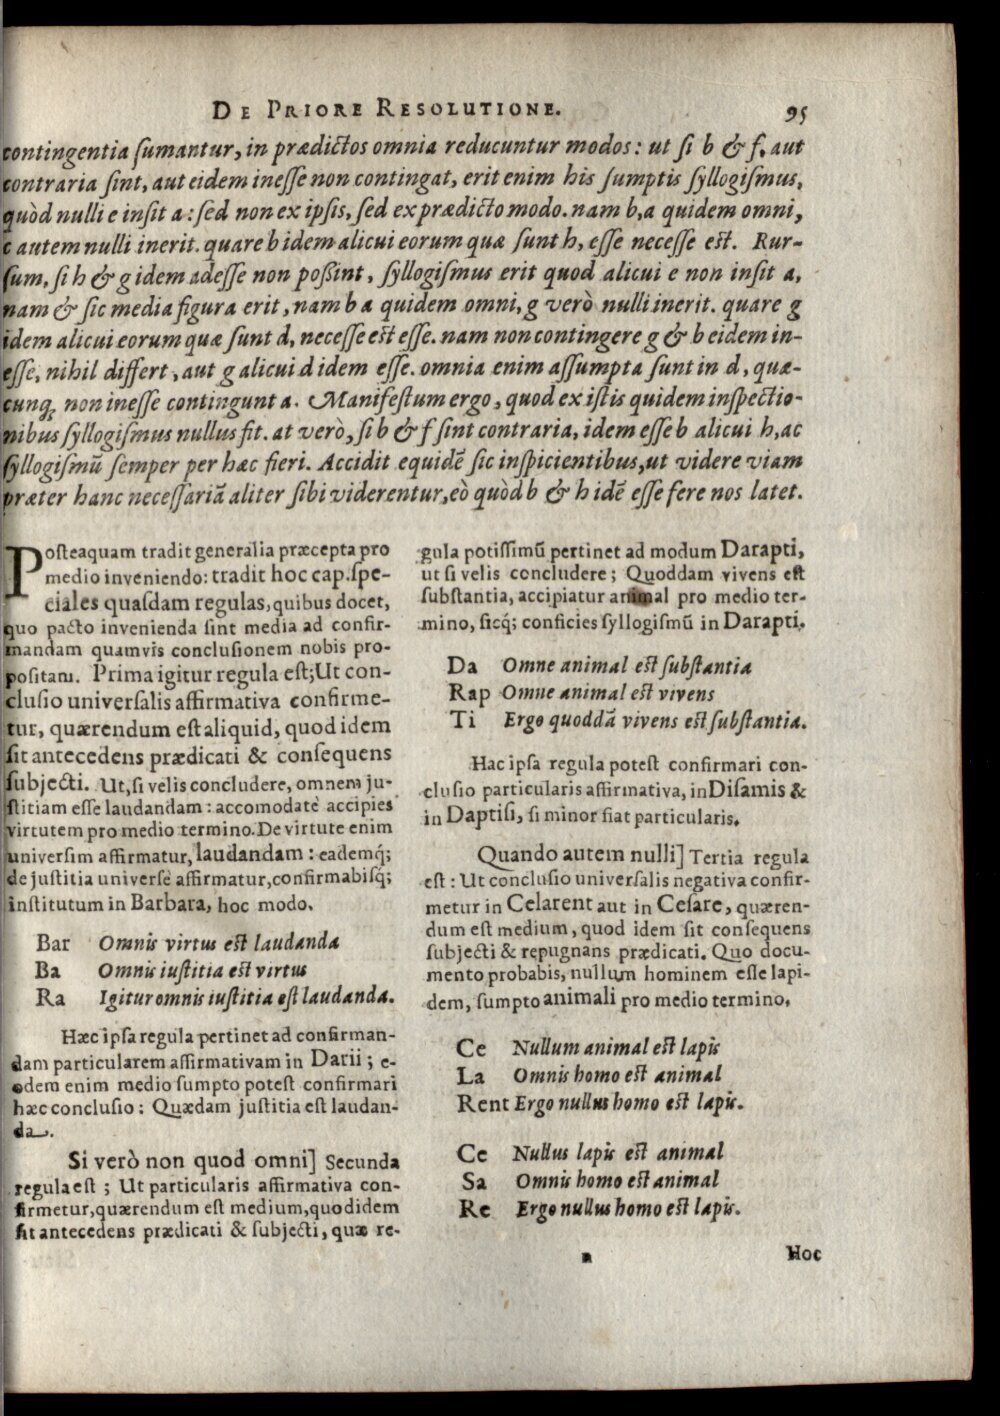 DE PRIORE RESOLUTIONE. 95
contingentia ſumantur, in prædictos omnia reducuntur modos: ut ſi b & f, aut
contraria ſint, aut eidem ineſſe non contingat, erit enim his ſumptis ſyllogiſmus,
quòd nulli e inſit a: ſed non ex ipſis, ſed ex prædicto modo. nam b, a quidem omni,
c autem nulli inerit. quare b idem alicui eorum quæ ſunt h, eſſe neceſſe eſt. Rur-
ſum, ſi h & g idem adeſſe non poßint, ſyllogiſmus erit quod alicui e non inſit a,
nam & ſic media figura erit, nam b a quidem omni, g verò nulli inerit. quare g
idem alicui eorum quæ ſunt d, neceſſe eſt eſſe. nam non contingere g & b eidem in-
eſſe, nihil differt, aut g alicui d idem eſſe. omnia enim aſſumpta ſunt in d, quæ-
cunq; non ineſſe contingunt a. Manifeſtum ergo, quod ex iſtis quidem inſpectio-
nibus ſyllogiſmus nullus fit. at verò, ſi b & f ſint contraria, idem eſſe b alicui h, ac
ſyllogiſmū ſemper per hæc fieri. Accidit equidē ſic inſpicientibus, ut videre viam
præter hanc neceſſariã aliter ſibi viderentur, eò quòd b & h idē eſſe fere nos latet.
Poſteaquam tradit generalia præcepta pro
medio inveniendo: tradit hoc cap. ſpe-
ciales quaſdam regulas, quibus docet,
quo pacto invenienda ſint media ad confir-
mandam quamvis concluſionem nobis pro-
poſitam. Prima igitur regula eſt; Ut con-
cluſio univerſalis affirmativa confirme-
tur, quærendum eſt aliquid, quod idem
ſit antecedens prædicati & conſequens
ſubjecti. Ut, ſi velis concludere, omnem ju-
ſtitiam eſſe laudandam: accomodatè accipies
virtutem pro medio termino. De virtute enim
univerſim affirmatur, laudandam: eademq́;
de juſtitia univerſè affirmatur, confirmabiſq́;
inſtitutum in Barbara, hoc modo.
Bar Omnis virtus eſt laudanda
Ba Omnis iuſtitia eſt virtus
Ra Igitur omnis iuſtitia eſt laudanda.
Hæc ipſa regula pertinet ad confirman-
dam particularem affirmativam in Darii; e-
odem enim medio ſumpto poteſt confirmari
hæc concluſio: Quædam juſtitia eſt laudan-
da.
Si verò non quod omni] Secunda
regula eſt; Ut particularis affirmativa con-
firmetur, quærendum eſt medium, quod idem
ſit antecedens prædicati & ſubjecti, quæ re-
gula potiſſimū pertinet ad modum Darapti,
ut ſi velis concludere; Quoddam vivens eſt
ſubſtantia, accipiatur animal pro medio ter-
mino, ſicq́; conficies ſyllogiſmū in Darapti.
Da Omne animal eſt ſubſtantia
Rap Omne animal eſt vivens
Ti Ergo quoddã vivens eſt ſubſtantia.
Hac ipſa regula poteſt confirmari con-
cluſio particularis affirmativa, in Diſamis &
in Daptiſi, ſi minor fiat particularis.
Quando autem nulli] Tertia regula
eſt: Ut concluſio univerſalis negativa confir-
metur in Celarent aut in Ceſare, quæren-
dum eſt medium, quod idem ſit conſequens
ſubjecti & repugnans prædicati. Quo docu-
mento probabis, nullum hominem eſſe lapi-
dem, ſumpto animali pro medio termino.
Ce Nullum animal eſt lapis
La Omnis homo eſt animal
Rent Ergo nullus homo eſt lapis.
Ce Nullus lapis eſt animal
Sa Omnis homo eſt animal
Re Ergo nullus homo eſt lapis.
n Hoc